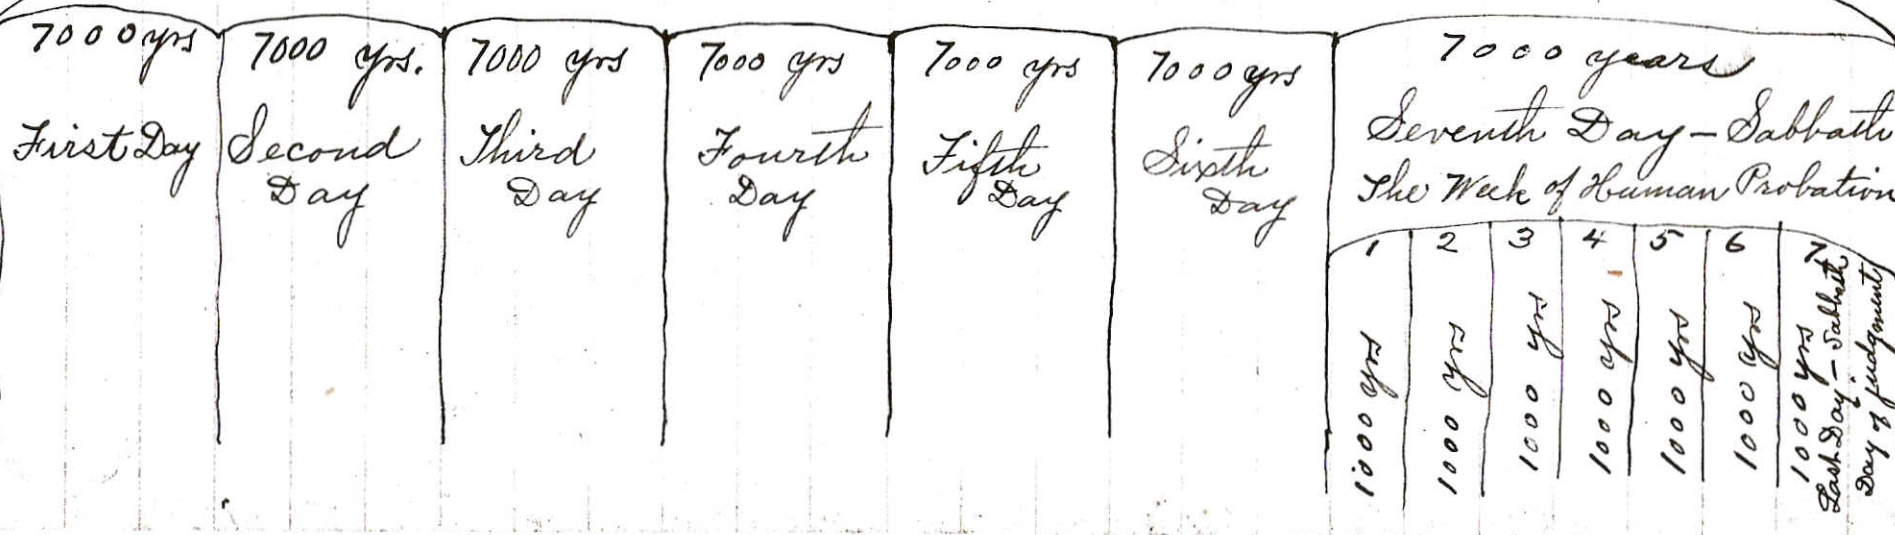 7000 yrs
First Day
7000 yrs.
Second
Day
7000 yrs
Third
Day
7000 yrs
Fourth
Day
7000 yrs
Fifth
Day
7000 yrs
Sixth
Day
7000 years
Seventh Day – Sabbath
The Week of Human Probation
1
1000 yrs
2
1000 yrs
3
1000 yrs
4
1000 yrs
5
1000 yrs
6
1000 yrs
7
1000 yrs
Last Day – Sabbath
Day of judgment